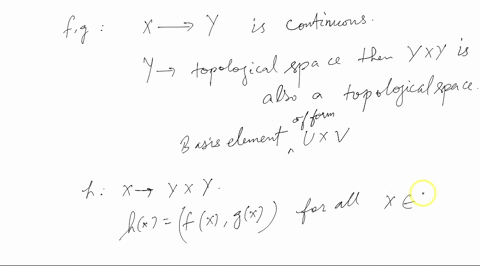 f,g : X ⟶ Y is continuous.
Y→ topological space then Y×Y is
also a topological space.
Basis element ‸of form U×V
h: X→ Y×Y.
h(x) = (f(x), g(x)) for all x ∈